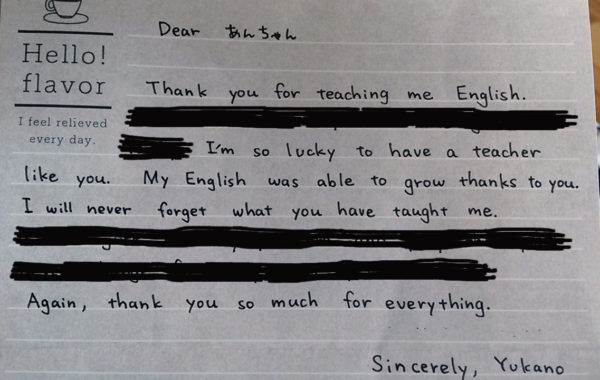 Dear あんちゃん
Hello!
flavor
I feel relieved
every day.
Thank you for teaching me English.
I'm so lucky to have a teacher
like you. My English was able to grow thanks to you.
I will never forget what you have taught me.
Again, thank you so much for everything.
Sincerely, Yukano